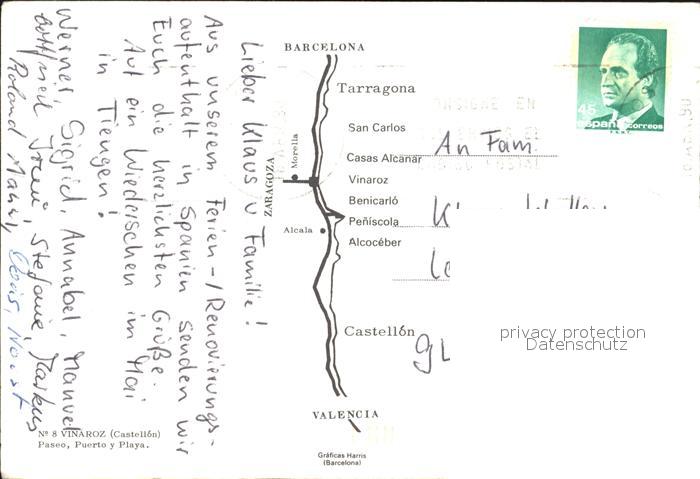 Lieber Klaus u Familie!
Aus unserem Ferien-/Renovierungs-
aufenthalt in Spanien senden wir
Euch die herzlichsten Grüße.
Auf ein Wiedersehen im Mai
in Tiengen!
Werner, Sigrid, Annabel, Manuel
Gottfried, Stefanie, Markus
Roland, Doris,
BARCELONA
Tarragona
San Carlos
Casas Alcanar
Morella
ZARAGOZA
Vinaroz
Benicarló
Peñíscola
Alcala
Alcocéber
Castellón
VALENCIA
Nº 8 VINAROZ (Castellón)
Paseo, Puerto y Playa.
Gráficas Harris
(Barcelona)
45
españa correos
An Fam.
privacy protection
Datenschutz